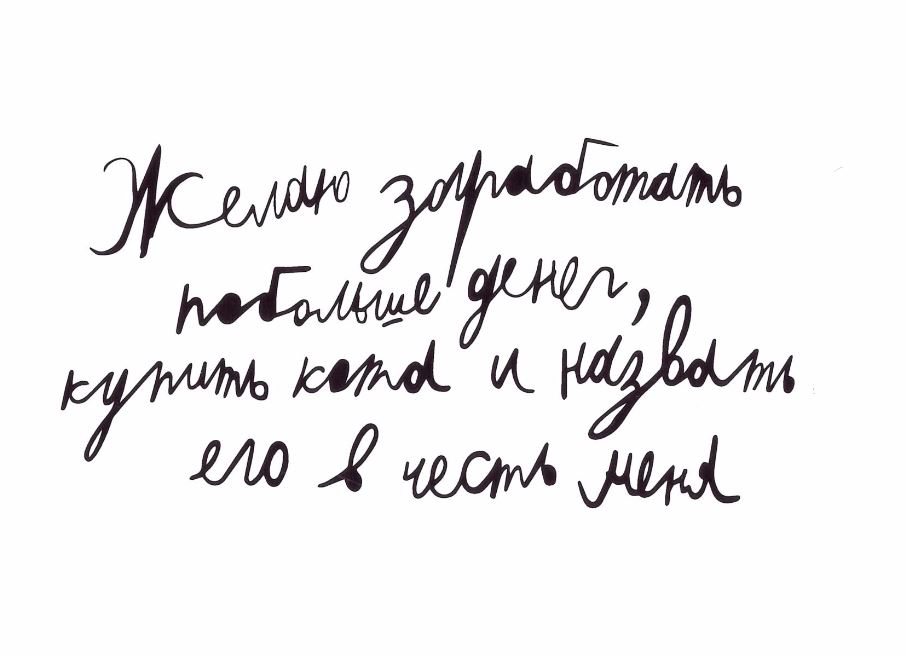 Желаю заработать
побольше денег,
купить кота и назвать
его в честь меня